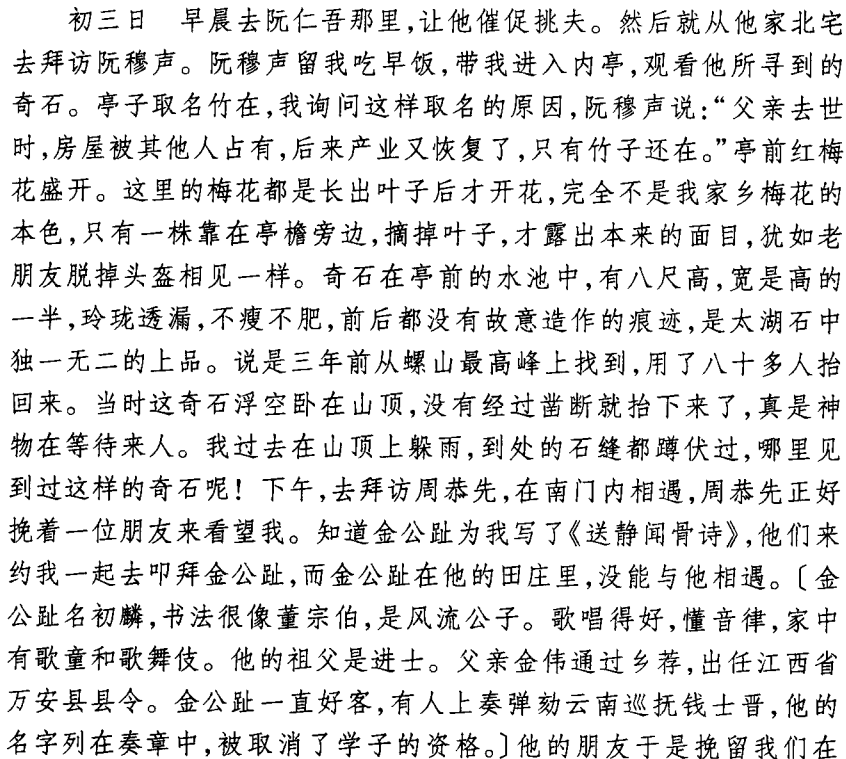 初三日　早晨去阮仁吾那里,让他催促挑夫。然后就从他家北宅
去拜访阮穆声。阮穆声留我吃早饭,带我进入内亭,观看他所寻到的
奇石。亭子取名竹在,我询问这样取名的原因,阮穆声说:“父亲去世
时,房屋被其他人占有,后来产业又恢复了,只有竹子还在。”亭前红梅
花盛开。这里的梅花都是长出叶子后才开花,完全不是我家乡梅花的
本色,只有一株靠在亭檐旁边,摘掉叶子,才露出本来的面目,犹如老
朋友脱掉头盔相见一样。奇石在亭前的水池中,有八尺高,宽是高的
一半,玲珑透漏,不瘦不肥,前后都没有故意造作的痕迹,是太湖石中
独一无二的上品。说是三年前从螺山最高峰上找到,用了八十多人抬
回来。当时这奇石浮空卧在山顶,没有经过凿断就抬下来了,真是神
物在等待来人。我过去在山顶上躲雨,到处的石缝都蹲伏过,哪里见
到过这样的奇石呢！下午,去拜访周恭先,在南门内相遇,周恭先正好
挽着一位朋友来看望我。知道金公趾为我写了《送静闻骨诗》,他们来
约我一起去叩拜金公趾,而金公趾在他的田庄里,没能与他相遇。〔金
公趾名初麟,书法很像董宗伯,是风流公子。歌唱得好,懂音律,家中
有歌童和歌舞伎。他的祖父是进士。父亲金伟通过乡荐,出任江西省
万安县县令。金公趾一直好客,有人上奏弹劾云南巡抚钱士晋,他的
名字列在奏章中,被取消了学子的资格。〕他的朋友于是挽留我们在